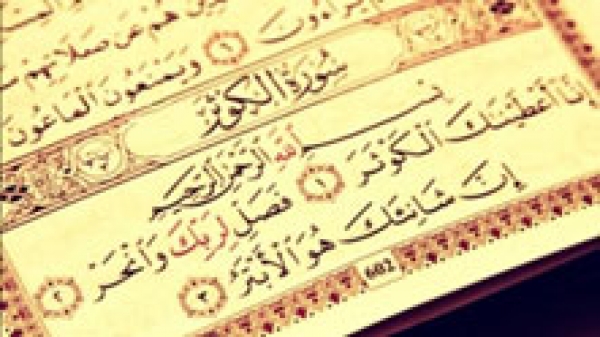 هُمْ عَن صَلَاتِهِمْ
يُرَآءُونَ وَيَمْنَعُونَ ٱلْمَاعُونَ
سُورَةُ الكَوْثَرِ
بِسْمِ ٱللَّهِ ٱلرَّحْمَٰنِ ٱلرَّحِيمِ
إِنَّآ أَعْطَيْنَٰكَ ٱلْكَوْثَرَ ١ فَصَلِّ لِرَبِّكَ وَٱنْحَرْ ٢
إِنَّ شَانِئَكَ هُوَ ٱلْأَبْتَرُ ٣
602